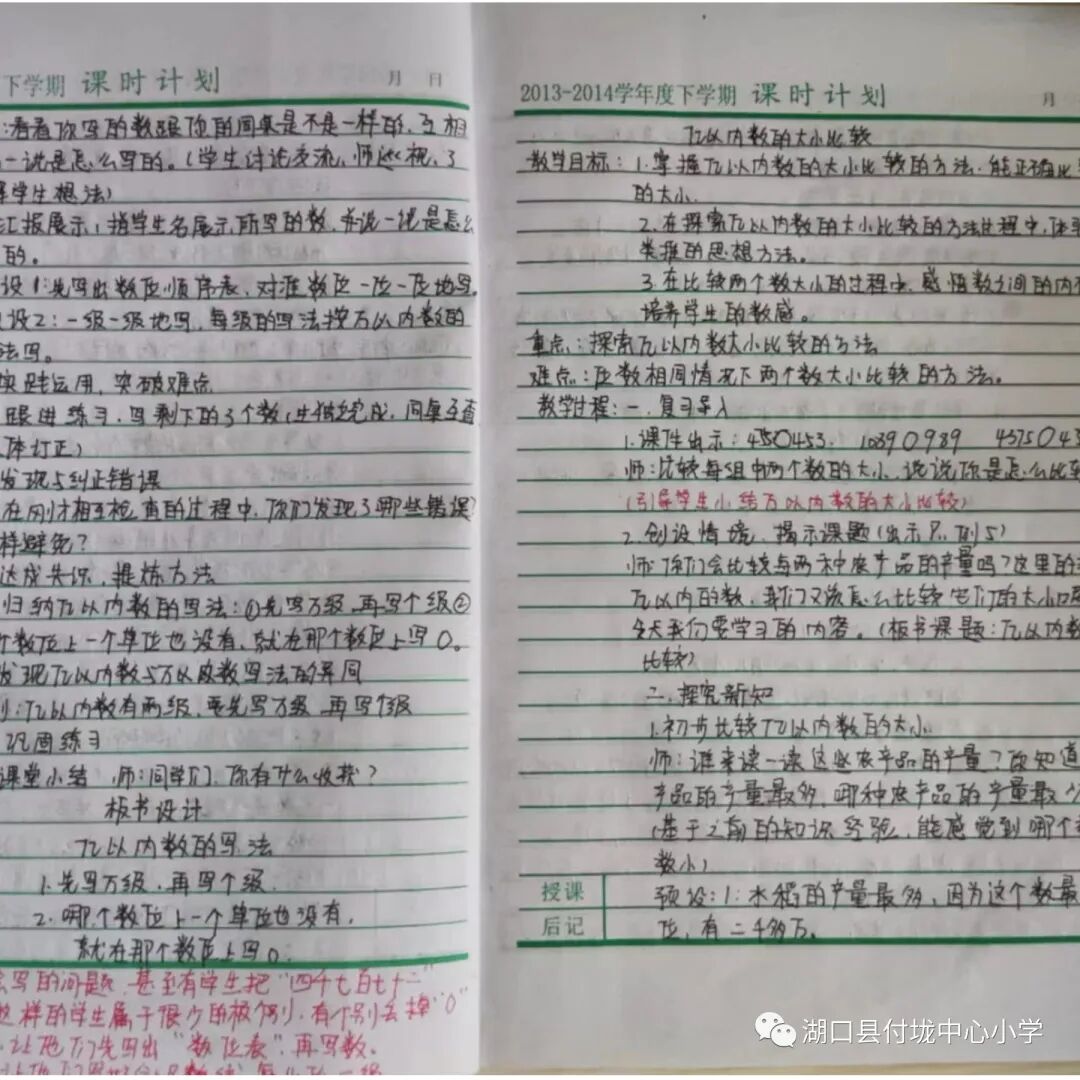 下学期 课时计划 月 日
：看看你写的数跟你的同桌是不是一样的，互相
一说是怎么写的。（学生讨论交流，师巡视，了
解学生想法）
汇报展示，指学生名展示所写的数，并说一说是怎么
的。
设1：先写出数位顺序表，对准数位一位一位地写。
设2：一级一级地写，每级的写法按万以内数的
法写。
实践运用，突破难点
跟进练习，写剩下的3个数（生独立完成，同桌互查
体订正）
发现与纠正错误
在刚才相互检查的过程中，你们发现了哪些错误？
样避免？
达成共识，提炼方法
归纳亿以内数的写法：①先写万级，再写个级②
个数位上一个单位也没有，就在那个数位上写0。
发现亿以内数与万以内数写法的异同
：亿以内数有两级，要先写万级，再写个级
巩固练习
课堂小结 师：同学们，你有什么收获？
板书设计
亿以内数的写法
1.先写万级，再写个级。
2.哪个数位上一个单位也没有，
就在那个数位上写0。
写的问题，甚至有学生把“四千七百七十二”
这样的学生属于很少的极个别，有个别会掉“0”
让他们先写出“数位表”，再写数。
2013-2014学年度下学期 课时计划 月
亿以内数的大小比较
教学目标：1.掌握亿以内数的大小比较的方法，能正确比
的大小。
2.在探索亿以内数的大小比较的方法过程中，体
类推的思想方法。
3.在比较两个数大小的过程中，感悟数之间的内
培养学生的数感。
重点：探索亿以内数大小比较的方法
难点：位数相同情况下两个数大小比较的方法。
教学过程：一、复习导入
1.课件出示：450○453 1089○989 4375○43
师：比较每组中两个数的大小，说说你是怎么比较
（引导学生小结万以内数的大小比较）
2.创设情境，揭示课题（出示 例5）
师：你们会比较与两种农产品的产量吗？这里的
亿以内的数，我们又该怎么比较它们的大小呢
今天我们要学习的内容。（板书课题：亿以内数
比较）
二、探究新知
1.初步比较亿以内数的大小。
师：谁来读一读这些农产品的产量？你知道
产品的产量最多，哪种农产品的产量最少
（基于之前的知识经验，能感觉到哪个
数小）
授课
后记
预设：1：水稻的产量最多，因为这个数最
位，有二千多万。
湖口县付垅中心小学